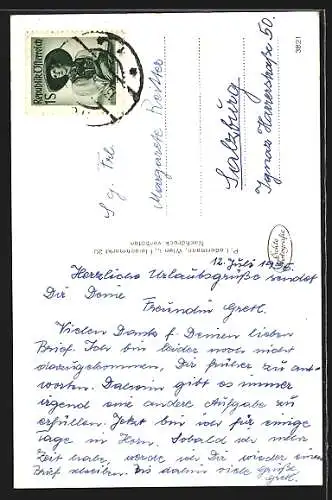 Republik Österreich
1 S
S. g. Frl.
Margarete
Salzburg
Ignaz Harrerstraße 50.
3821
P. Ledermann, Wien I., Fleischmarkt 20
Nachdruck verboten
Echte
Fotografie
12. Juli
Herzliche Urlaubsgrüße sendet
Dir Deine
Freundin Gretl.
Vielen Dank f. Deinen lieben
Brief. Ich bin leider noch nicht
dazugekommen, Dir früher zu ant-
worten. Daheim gibt es immer
irgend eine andere Aufgabe zu
erfüllen. Jetzt bin ich für einige
Tage in Horn. Sobald ich mehr
Zeit habe, werde ich Dir wieder einen
Brief schreiben. Bis dahin viele Grüße
Gretl.